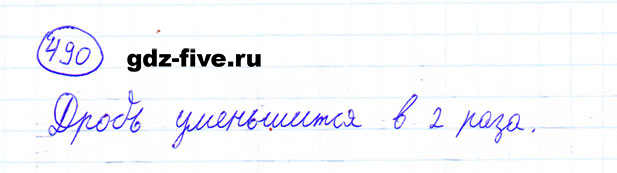 490
gdz-five.ru
Дробь уменьшится в 2 раза.